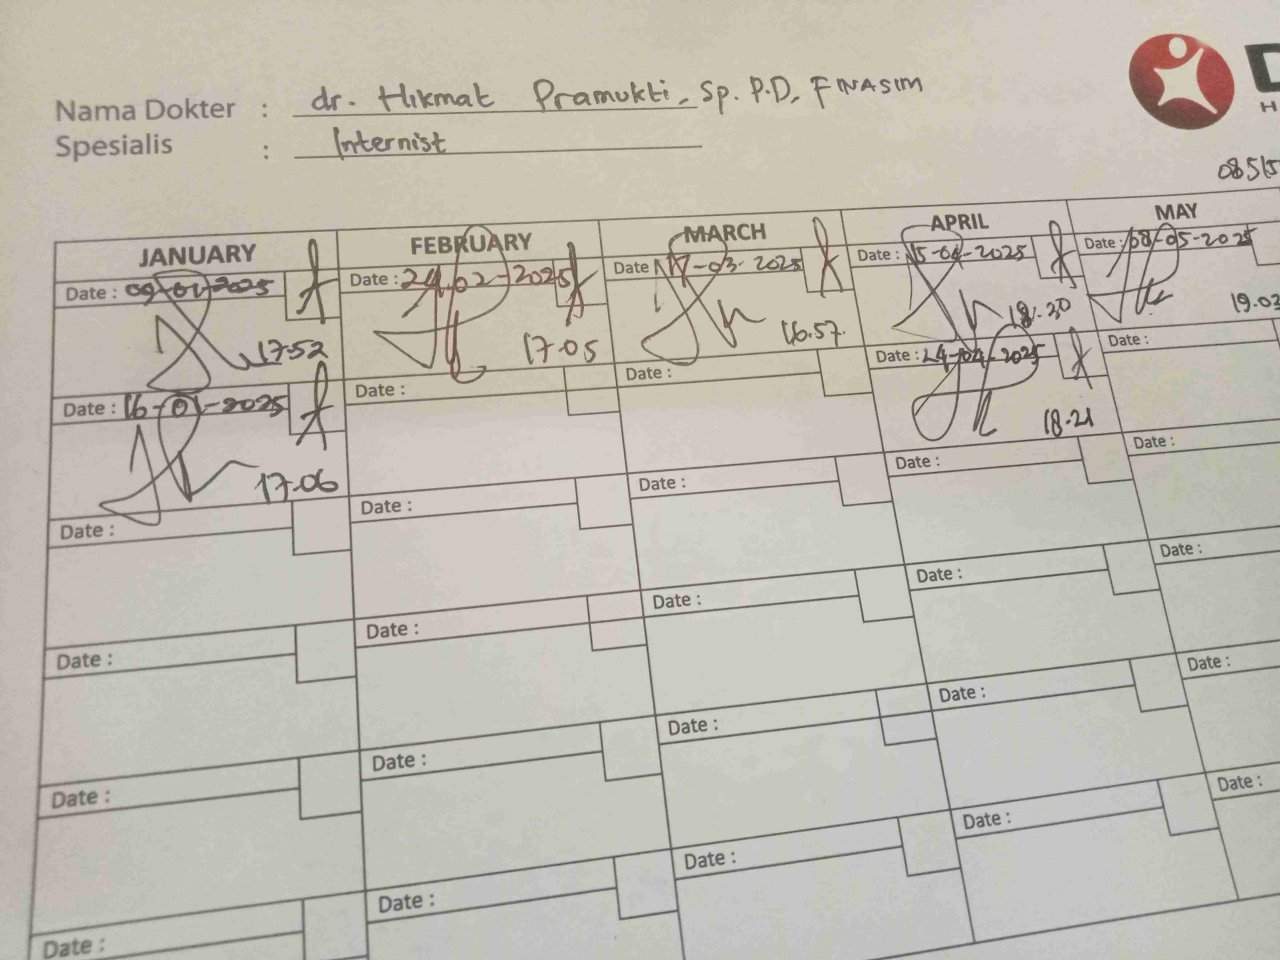 Nama Dokter : dr. Hikmat Pramukti, Sp. P.D, FINASIM
Spesialis : Internist
D
H
0851
JANUARY FEBRUARY MARCH APRIL MAY
Date : 09-01-2025 Date : 24.02-2025 Date 17-03-2025 Date : 15-04-2025 Date : 08-05-2025
17.52 17.05 16.57 18.30 19.03
Date : 16-01-2025 Date : Date : Date : 24-04-2025 Date :
17.06 18.21
Date : Date : Date : Date : Date :
Date : Date : Date : Date : Date :
Date : Date : Date : Date : Date :
Date : Date : Date : Date : Date :